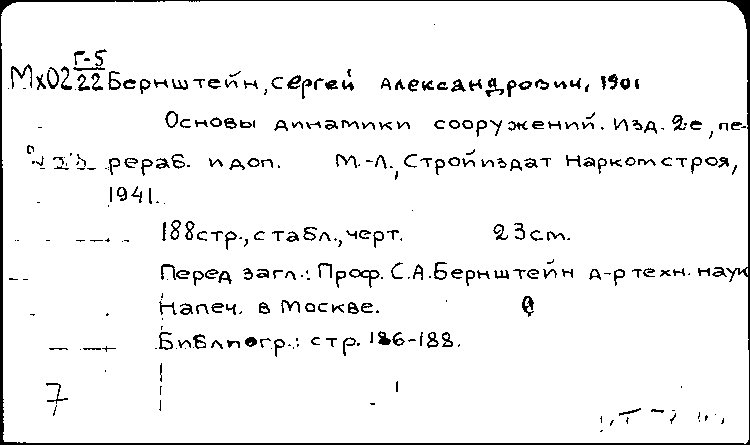 Мх02 Г-5/22 Бернштейн, Сергей Александрович, 1901
Основы динамики сооружений. Изд. 2-е, пе-
рераб. и доп. М.-Л., Стройиздат Наркомстроя,
1941.
188 стр., с табл., черт. 23 cm.
Перед загл.: Проф. С.А. Бернштейн д-р техн. наук
Напеч. в Москве.
Библиогр.: стр. 186-188.
7